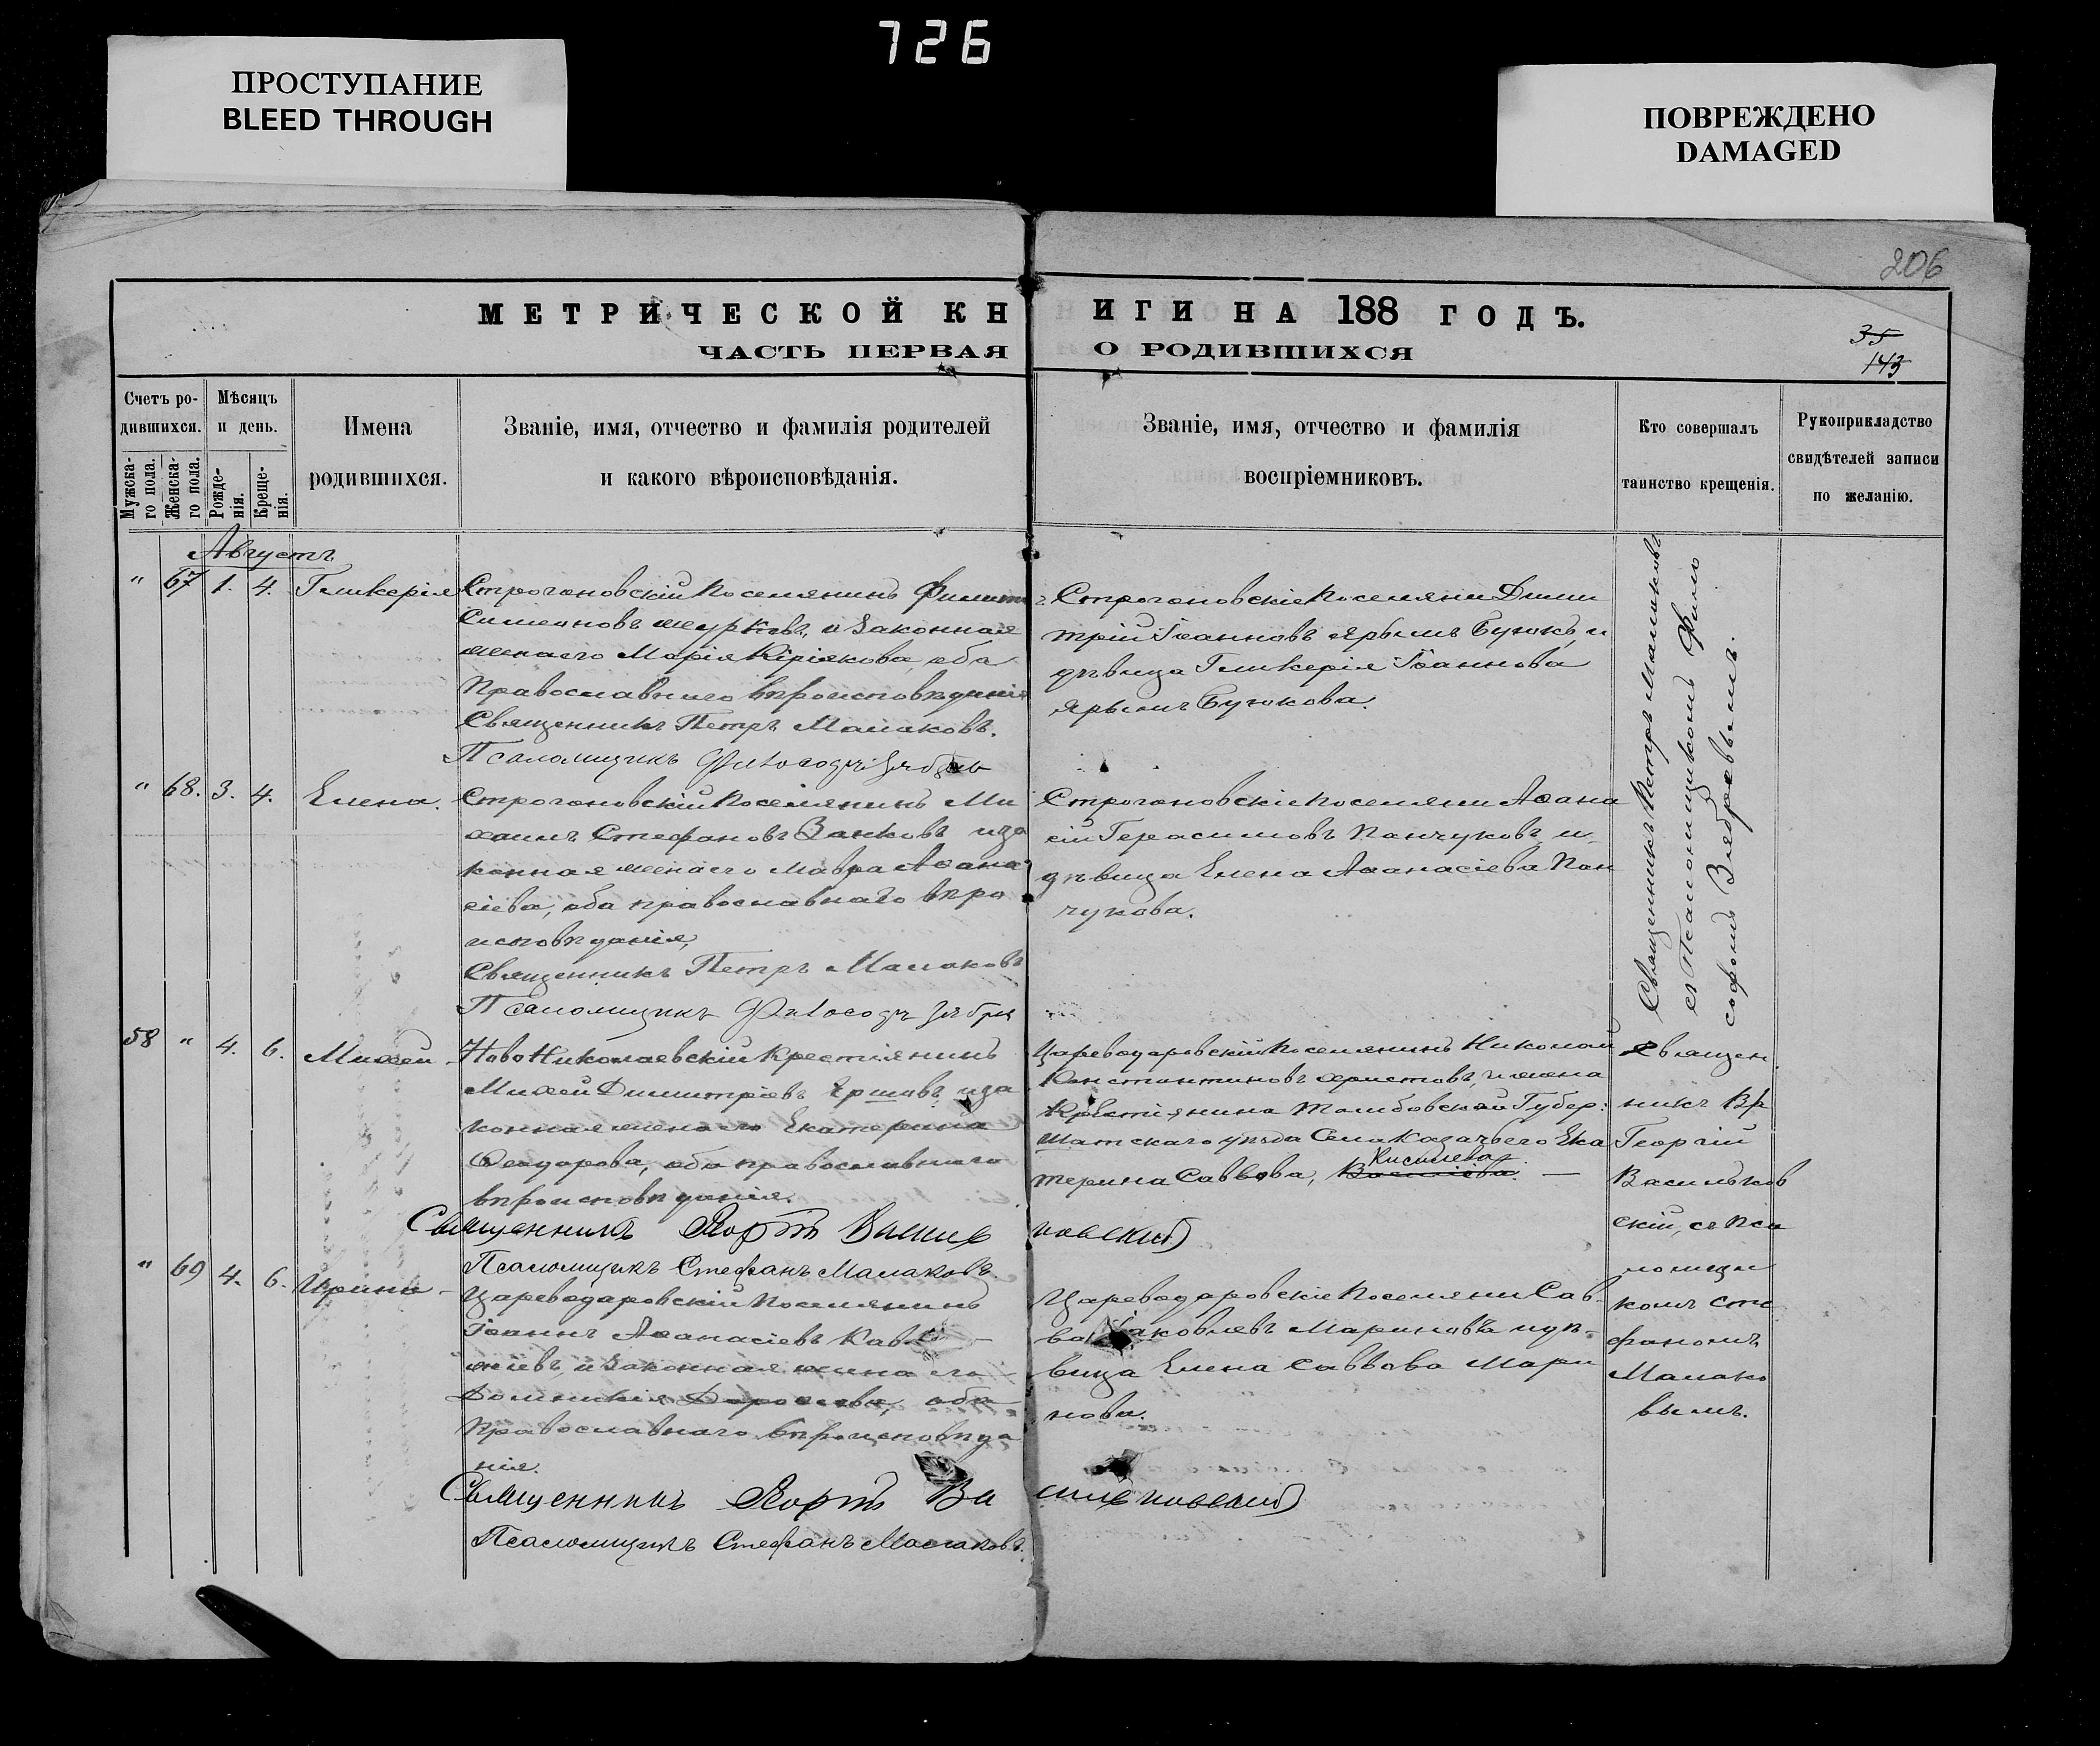 726
ПРОСТУПАНИЕ
BLEED THROUGH
ПОВРЕЖДЕНО
DAMAGED
206
МЕТРИЧЕСКОЙ КНИГИ НА 188 ГОДЪ.
35
143
ЧАСТЬ ПЕРВАЯ О РОДИВШИХСЯ
Счетъ ро-
дившихся.
Мужска-
го пола.
Женска-
го пола.
Мѣсяцъ
и день.
Рожде-
нія.
Креще-
нія.
Имена
родившихся.
Званіе, имя, отчество и фамилія родителей
и какого вѣроисповѣданія.
Званіе, имя, отчество и фамилія
воспріемниковъ.
Кто совершалъ
таинство крещенія.
Рукоприкладство
свидѣтелей записи
по желанію.
Августъ
" 67 1. 4. Гликерія
Строгановскій Поселянинъ Филиппъ
Симеоновъ и законная
жена его Марія Киріякова, оба
Православнаго вѣроисповѣданія
Священникъ Петръ Малаковъ.
Псаломщикъ
Строгановскіе Поселяни Дими
трій Іоанновъ Ярымъ Буюкъ, и
дѣвица Гликерія Іоаннова
Ярымъ Буюкова.
Священникъ Петръ Малаковъ
съ Псаломщикомъ Фило
софомъ
" 68. 3. 4. Елена.
Строгановскій Поселянинъ Ми
хаилъ Стефановъ Занковъ и за
конная жена его Мавра Аѳана
сіева, оба православнаго вѣро
исповѣданія,
Священникъ Петръ Малаковъ
Псаломщикъ
Строгановскіе Поселяни Аѳана
сій Герасимовъ Панчуковъ и
дѣвица Елена Аѳанасіева Пан
чукова.
58 " 4. 6. Михей.
Ново Николаевскій Крестіянинъ
Михей Димитріевъ Ершовъ, и за
конная жена его Екатерина
Ѳеодорова, оба православнаго
вѣроисповѣданія.
Священникъ
Псаломщикъ Стефанъ Малаковъ
Цареводаровскій Поселянинъ Николай
Константиновъ Христовъ, и жена
Крестіянина Тамбовской Губер:
Шатскаго уѣзда Села Казачьего Ека
терина Саввова, Киселева
Священ
никъ
Георгій
Васильков
скій, съ Пса
ломщи
комъ Сте
фаномъ
Малако
вымъ.
" 69 4. 6. Ирина
Цареводаровскій Поселянинъ
Іоаннъ Аѳанасіевъ
и законная жена его
Домникія Дороѳеева, оба
Православнаго вѣроисповѣда
нія.
Священникъ
Псаломщикъ Стефанъ Малаковъ.
Цареводаровскіе Поселяни Сав
ва Іаковлевъ Мариновъ и дѣ-
вица Елена Саввова Мари
нова.